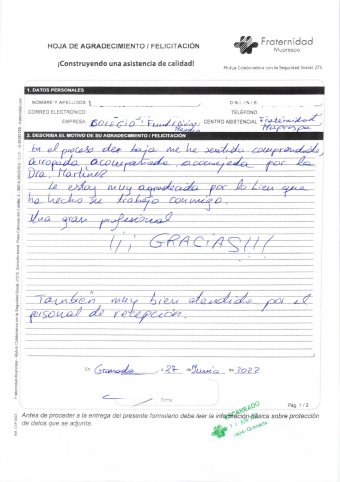 HOJA DE AGRADECIMIENTO / FELICITACIÓN
¡Construyendo una asistencia de calidad!
Fraternidad
Muprespa
Mutua Colaboradora con la Seguridad Social, 275
1. DATOS PERSONALES
NOMBRE Y APELLIDOS
D.N.I / N.I.E.
CORREO ELECTRÓNICO
TELÉFONO
EMPRESA COLEGIO: Fundación
CENTRO ASISTENCIAL Fraternidad Muprespa
2. DESCRIBA EL MOTIVO DE SU AGRADECIMIENTO / FELICITACIÓN
En el proceso de baja me he sentido comprendida,
arropada acompañada, aconsejada por la
Dra. Martínez
Le estoy muy agradecida por lo bien que
ha hecho su trabajo conmigo.
Una gran profesional
¡¡¡ GRACIAS!!!
También muy bien atendida por el
personal de recepción.
En Granada a 27 de Junio de 2022
Firma
Pág. 1 / 2
Antes de proceder a la entrega del presente formulario debe leer la información básica sobre protección
de datos que se adjunta.
ESCANEADO
Granada